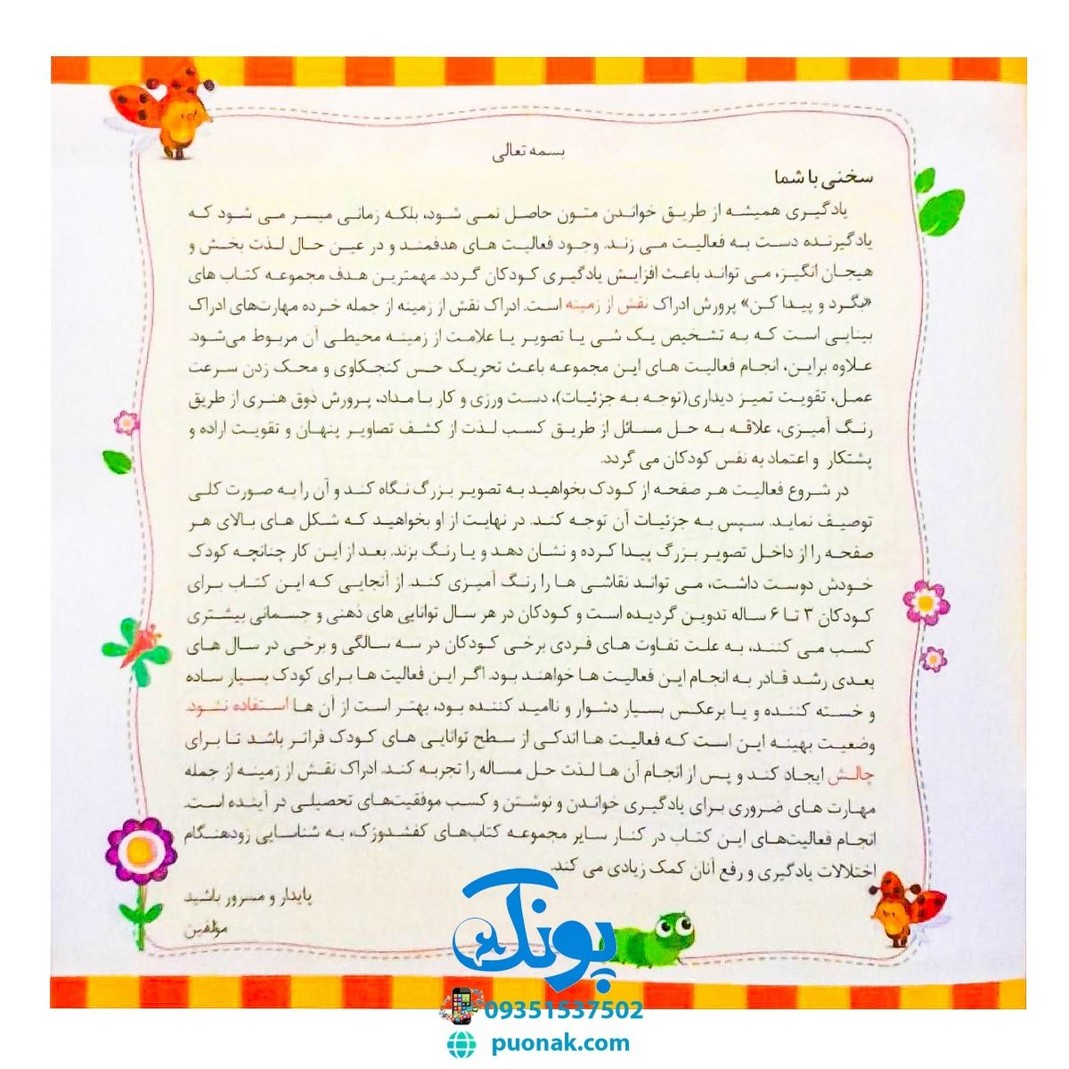 بسمه تعالی
سخنی با شما
یادگیری همیشه از طریق خواندن متون حاصل نمی شود، بلکه زمانی میسر می شود که
یادگیرنده دست به فعالیت می زند. وجود فعالیت های هدفمند و در عین حال لذت بخش و
هیجان انگیز، می تواند باعث افزایش یادگیری کودکان گردد. مهمترین هدف مجموعه کتاب های
«بگرد و پیدا کن» پرورش ادراک نقش از زمینه است. ادراک نقش از زمینه از جمله خرده مهارت‌های ادراک
بینایی است که به تشخیص یک شی یا تصویر یا علامت از زمینه محیطی آن مربوط می‌شود.
علاوه براین، انجام فعالیت های این مجموعه باعث تحریک حس کنجکاوی و محک زدن سرعت
عمل، تقویت تمیز دیداری(توجه به جزئیات)، دست ورزی و کار با مداد، پرورش ذوق هنری از طریق
رنگ آمیزی، علاقه به حل مسائل از طریق کسب لذت از کشف تصاویر پنهان و تقویت اراده و
پشتکار و اعتماد به نفس کودکان می گردد.
در شروع فعالیت هر صفحه از کودک بخواهید به تصویر بزرگ نگاه کند و آن را به صورت کلی
توصیف نماید. سپس به جزئیات آن توجه کند. در نهایت از او بخواهید که شکل های بالای هر
صفحه را از داخل تصویر بزرگ پیدا کرده و نشان دهد و یا رنگ بزند. بعد از این کار چنانچه کودک
خودش دوست داشت، می تواند نقاشی ها را رنگ آمیزی کند. از آنجایی که این کتاب برای
کودکان ۳ تا ۶ ساله تدوین گردیده است و کودکان در هر سال توانایی های ذهنی و جسمانی بیشتری
کسب می کنند، به علت تفاوت های فردی برخی کودکان در سه سالگی و برخی در سال های
بعدی رشد قادر به انجام این فعالیت ها خواهند بود. اگر این فعالیت ها برای کودک بسیار ساده
و خسته کننده و یا برعکس بسیار دشوار و ناامید کننده بود، بهتر است از آن ها استفاده نشود.
وضعیت بهینه این است که فعالیت ها اندکی از سطح توانایی های کودک فراتر باشد تا برای
چالش ایجاد کند و پس از انجام آن ها لذت حل مساله را تجربه کند. ادراک نقش از زمینه از جمله
مهارت های ضروری برای یادگیری خواندن و نوشتن و کسب موفقیت‌های تحصیلی در آینده است.
انجام فعالیت‌های این کتاب در کنار سایر مجموعه کتاب‌های کفشدوزک، به شناسایی زودهنگام
اختلالات یادگیری و رفع آنان کمک زیادی می کند.
پایدار و مسرور باشید
مولفین
پونک
09351537502
puonak.com